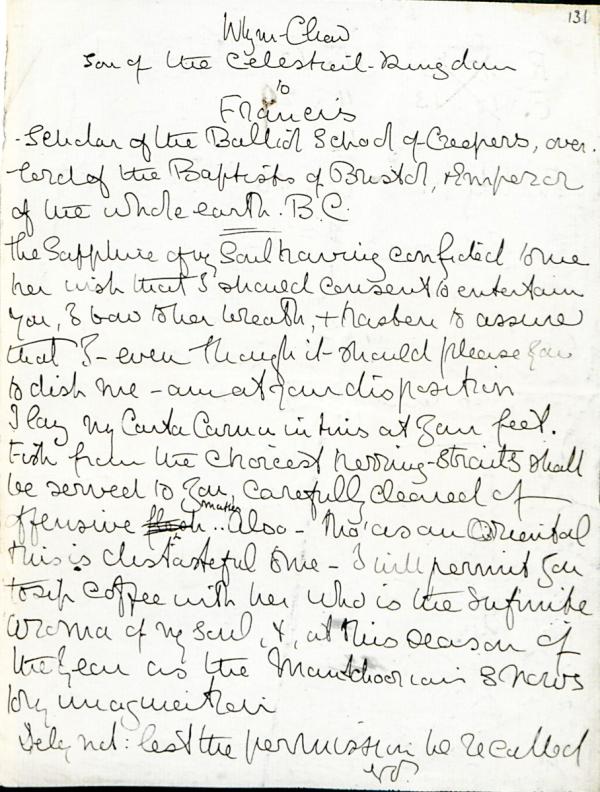 131
Wym-Chow
Son of the Celestial-Kingdom
to
Francis
-Scholar of the Balliol School of Creepers, over.
lord of the Baptists of Bristol, + Emperor
of the whole earth. B.C.
The Sapphire of my Soul having confided to me
her wish that I should consent to entertain
you, I bow to her wreath, + hasten to assure
that I - even though it should please you
to dish me - am at your disposition
I lay my Carta Carna in tins at your feet.
Fish from the choicest herring-straits shall
be served to you, carefully cleaned of
offensive matter.. Also - tho' as an Oriental
this is distasteful to me - I will permit you
to sip coffee with her who is the Infinite
Aroma of my soul, &, at this season of
the year as the Manchoorian Snows
to my imagination
Delay not: lest the permission be recalled